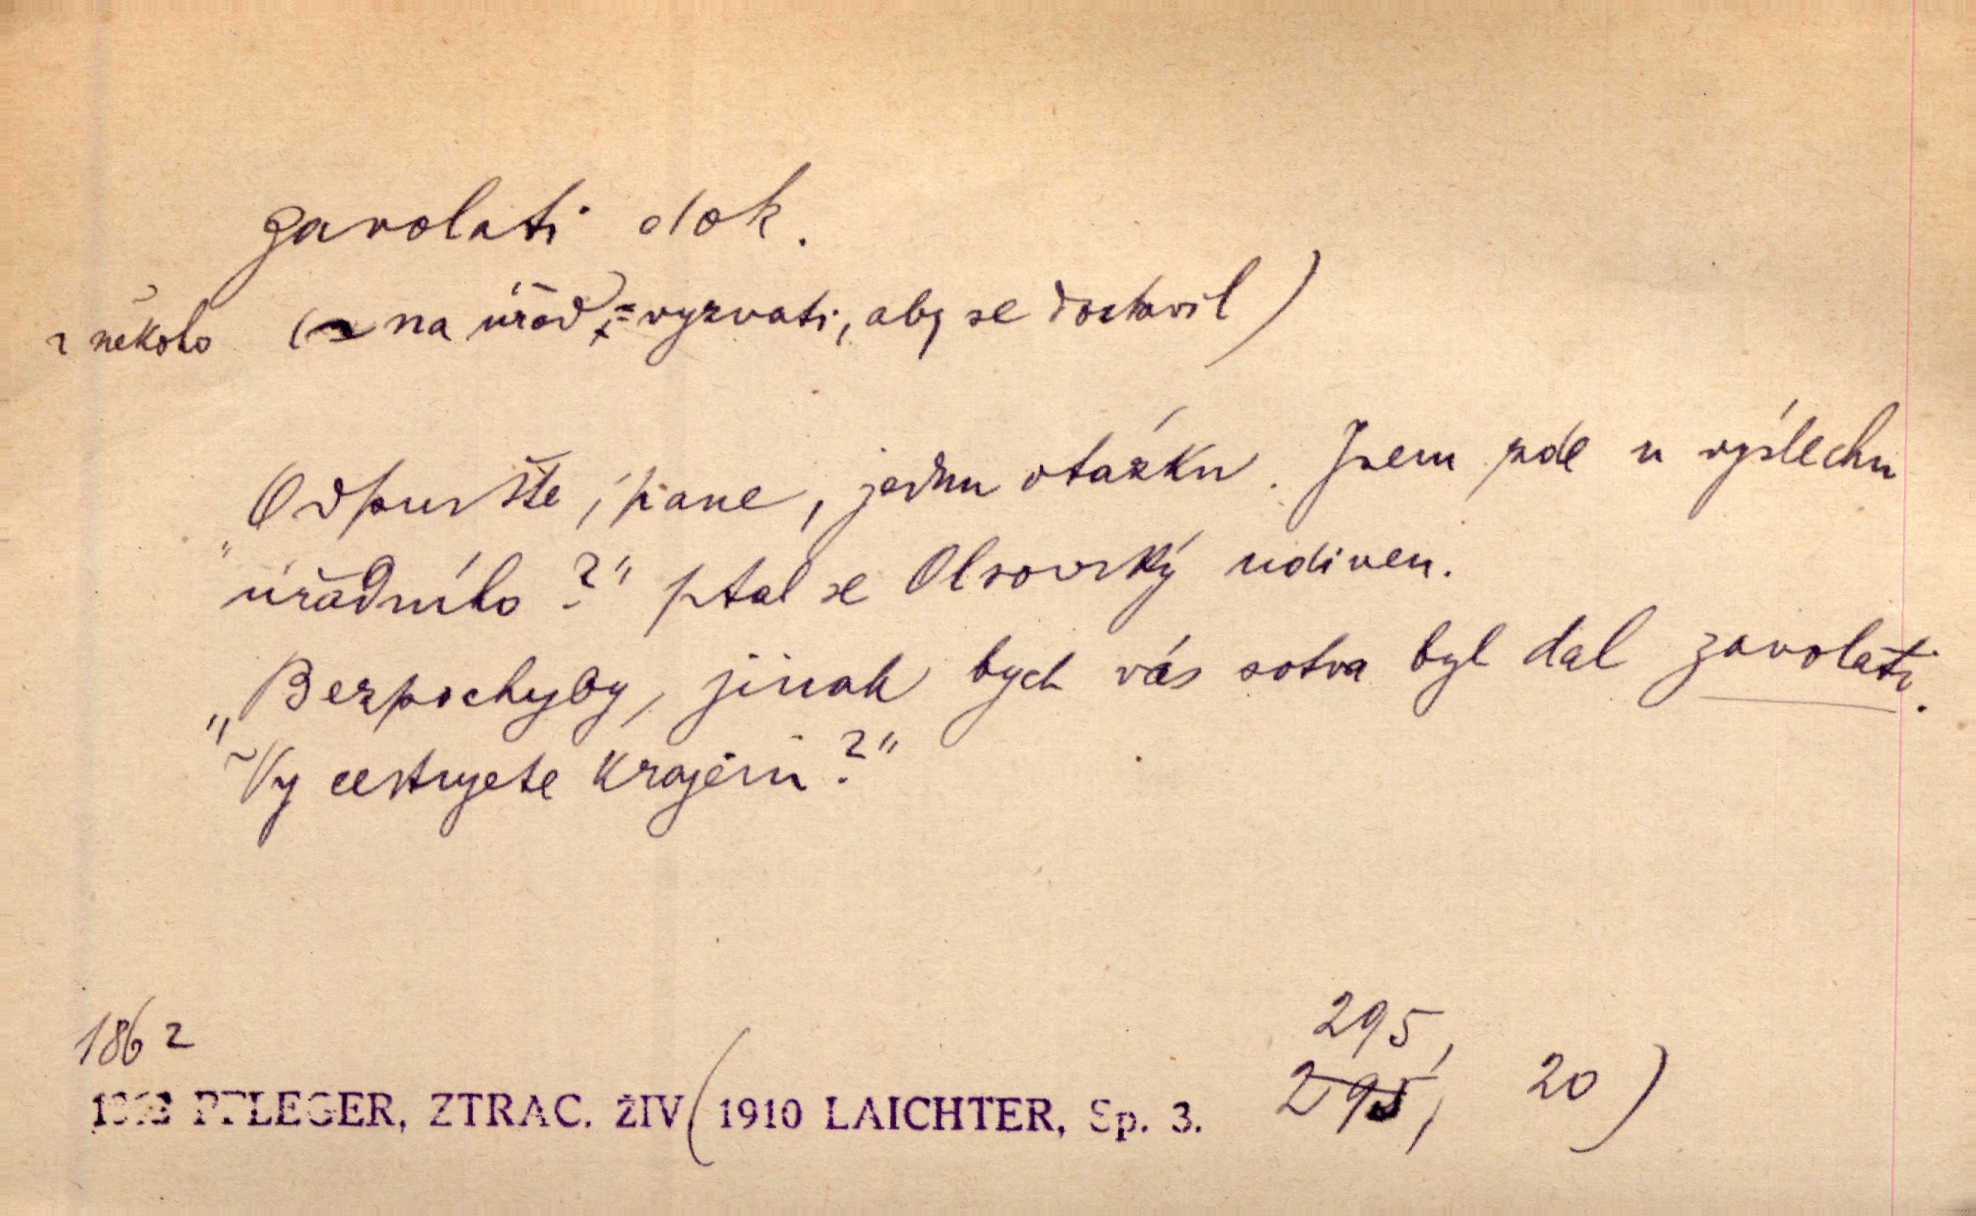 zavolati dok.
~ někoho (~ na úřad = vyzvati, aby se dostavil)
„Odpusťte, pane, jednu otázku. Jsem zde u výslechu
úředního?" ptal se Olsovský udiven.
„Bezpochyby, jinak bych vás sotva byl dal zavolati.
Vy cestujete krajem?"
1862
1862 PFLEGER, ZTRAC. ŽIV (1910 LAICHTER, Sp. 3. 295, 20)
295,